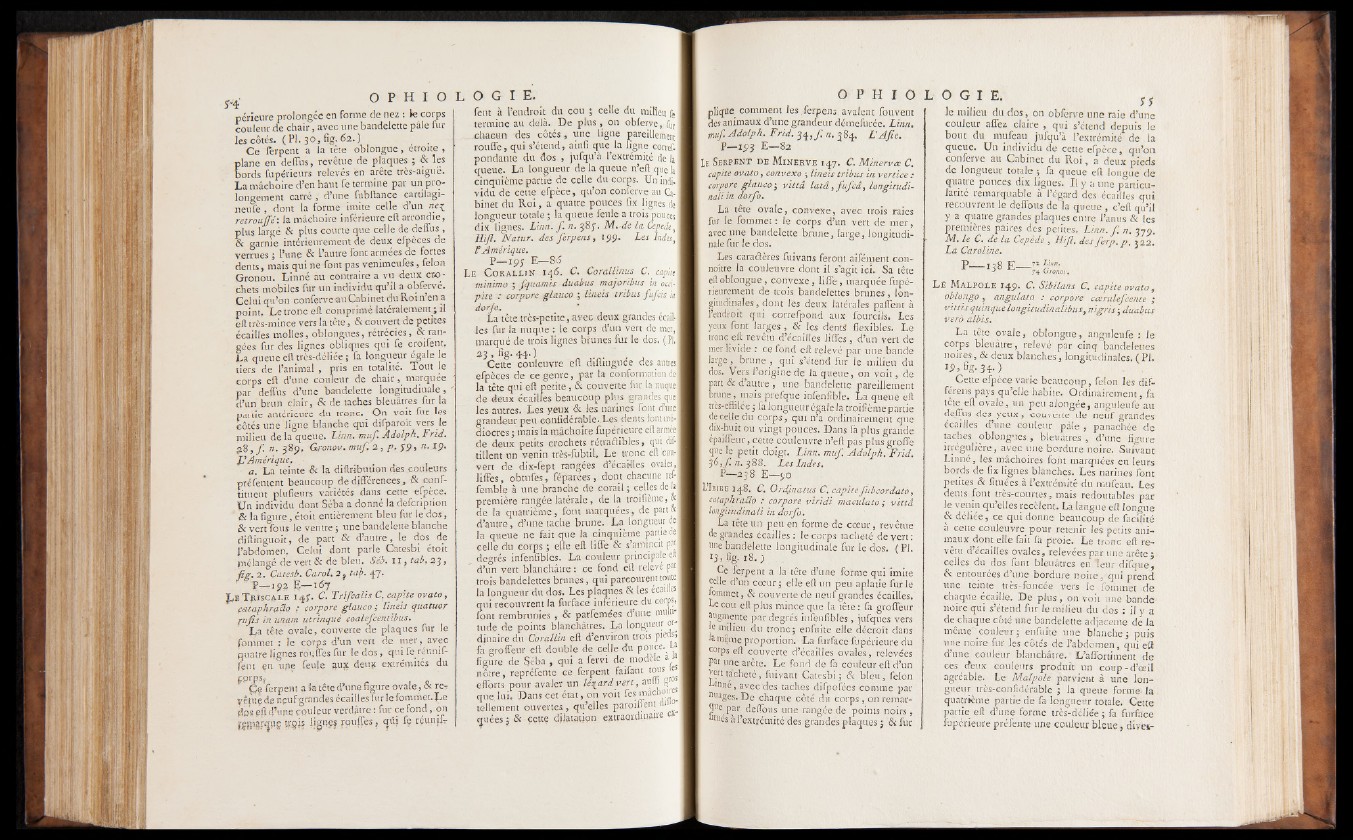 54 OPHIOLOGIE.
périeure prolongée en forme de nez : le corps
couleur de chair, avec une bandelette pâle ſur
les côtés. (Pl. 30, fig. 62.)
Ce ſerpent a la tête oblongue, étroite,
plane en deſſus, revêtue de plaques ; & les
bords ſupérieurs relevés en arête très-aiguë.
La mâchoire d'en haut ſe termine par un pro-
longement carré, d'une ſubſtance cartilagi-
neuſe, dont la forme imite celle d'un nez
retrouſſé: la mâchoire inférieure eſt arrondie,
plus large & plus courte que celle de deſſus,
& garnie intérieurement de deux eſpèces de
verrues ; l'une & l'autre ſont armées de fortes
dents, mais qui ne ſont pas venimeuſes, ſelon
Gronou. Linné au contraire a vu deux cro-
chets mobiles ſur un individu qu'il a obſervé.
Celui qu'on conſerve au Cabinet du Roi n'en a
point. Le tronc eſt comprimé latéralement ; il
eſt très-mince vers la tête, & couvert de petites
écailles molles, oblongues, rétrécies, & ran-
gées ſur des lignes obliques qui ſe croiſent.
La queue eſt très-déliée ; ſa longueur égale le
tiers de l'animal, pris en totalité. Tout le
corps eſt d'une couleur de chair, marquée
par deſſus d'une bandelette longitudinale,
d'un brun clair, & de taches bleuâtres ſur la
partie antérieure du tronc. On voit ſur les
côtés une ligne blanche qui diſparoît vers le
milieu de la queue. Linn. muſ. Adolph. Frid.
28, ſ. n. 389. Gronov. muſ. 2, p. 59, n. 19.
L'Amérique.
a. La teinte & la diſtribution des couleurs
préſentent beaucoup de différences, & conſ-
tituent pluſieurs variétés dans cette eſpèce.
Un individu dont Séba a donné la deſcription
& la figure, étoit entièrement bleu ſur le dos,
& vert ſous le ventre ; une bandelette blanche
diſtinguoit, de part & d'autre, le dos de
l'abdomen. Celui dont parle Catesbi étoit
mélangé de vert & de bleu. Séb. 11, tab. 23,
fig. 2. Catesb. Carol. 2, tab. 47.
P—192 E—167
LE TRISCALE 145. C. Triſcalis C. capite ovato,
cataphracto : corpore glauco ; lineis quatuor
rufis in unam utrinque coaleſcentibus.
La tête ovale, couverte de plaques ſur le
ſommet : le corps d'un vert de mer, avec
quatre lignes rouſſes ſur le dos, qui ſe réuniſ-
ſent en une ſeule aux deux extrémités du
corps.
Ce ſerpent a la tête d'une figure ovale, & re-
vêtue de neuf grandes écailles ſur le ſommet. Le
dos eſt d'une couleur verdâtre : ſur ce fond, on
remarque trois lignes rouſſes, qui ſe réuniſ-
ſent à l'endroit du cou ; celle du milieu ſe
termine au delà. De plus, on obſerve, ſur
chacun des côtés, une ligne pareillement
rouſſe, qui s'étend, ainſi que la ligne correſ-
pondante du dos, juſqu'à l'extrémité de la
queue. La longueur de la queue n'eſt que la
cinquième partie de celle du corps. Un indi-
vidu de cette eſpèce, qu'on conſerve au Ca-
binet du Roi, a quatre pouces ſix lignes de
longueur totale ; la queue ſeule a trois pouces
dix lignes. Linn. ſ. n. 385. M. de la Cepede,
Hiſt. Natur. des ſerpens, 199. Les Indes,
l'Amérique.
P—195 E—86
LE CORALLIN 146. C. Corallinus C. capite
minimo ; ſquamis duabus majoribus in occi-
pite : corpore glauco ; lineis tribus fuſcis in
dorſo.
La tête très-petite, avec deux grandes écail-
les ſur la nuque : le corps d'un vert de mer,
marqué de trois lignes brunes ſur le dos. (Pl.
23, fig. 44.)
Cette couleuvre eſt diſtinguée des autres
eſpèces de ce genre, par la conformation de
la tête qui eſt petite, & couverte ſur la nuque
de deux écailles beaucoup plus grandes que
les autres. Les yeux & les narines ſont d'une
grandeur peu conſidérable. Les dents ſont mé-
diocres ; mais la mâchoire ſupérieure eſt armée
de deux petits crochets rétractibles, qui diſ-
tillent un venin très-ſubtil. Le tronc eſt cou-
vert de dix-ſept rangées d'écailles ovales,
liſſes, obtuſes, ſéparées, dont chacune reſ-
ſemble à une branche de corail ; celles de la
première rangée latérale, de la troiſième, &
de la quatrième, ſont marquées, de part &
d'autre, d'une tache brune. La longueur de
la queue ne fait que la cinquième partie de
celle du corps ; elle eſt liſſe & s'amincit par
degrés inſenſibles. La couleur principale eſt
d'un vert blanchâtre : ce fond eſt relevé par
trois bandelettes brunes, qui parcourent toute
la longueur du dos. Les plaques & les écailles
qui recouvrent la ſurface inférieure du corps,
ſont rembrunies, & parſemées d'une multi-
tude de points blanchâtres. La longueur or-
dinaire du Corallin eſt d'environ trois pieds ;
ſa groſſeur eſt double de celle du pouce. La
figure de Séba, qui a ſervi de modèle à la
nôtre, repréſente ce ſerpent faiſant tous ſes
efforts pour avaler un lézard vert, auſſi gros
que lui. Dans cet état, on voit ſes mâchoires
tellement ouvertes, qu'elles paroiſſent diſlo-
quées ; & cette dilatation extraordinaire ex-
OPHIOLOGIE. 55
plique comment les ſerpens avalent ſouvent
des animaux d'une grandeur démeſurée. Linn.
muſ. Adolph. Frid. 34, ſ. n. 384. L'Aſie.
P—193 E—82
LE SERPENT DE MINERVE 147. C. Minervæ C.
capite ovato, convexo ; lineis tribus in vertice :
corpore glauco ; vittâ latâ, fuſcâ, longitudi-
nali in dorſo.
La tête ovale, convexe, avec trois raies
ſur le ſommet : le corps d'un vert de mer,
avec une bandelette brune, large, longitudi-
nale ſur le dos.
Les caractères ſuivans feront aiſément con-
noître la couleuvre dont il s'agit ici. Sa tête
eſt oblongue, convexe, liſſe, marquée ſupé-
rieurement de trois bandelettes brunes, lon-
gitudinales, dont les deux latérales paſſent à
l'endroit qui correſpond aux ſourcils. Les
yeux ſont larges, & les dents flexibles. Le
tronc eſt revêtu d'écailles liſſes, d'un vert de
mer livide : ce fond eſt relevé par une bande
large, brune, qui s'étend ſur le milieu du
dos. Vers l'origine de la queue, on voit, de
part & d'autre, une bandelette pareillement
brune, mais preſque inſenſible. La queue eſt
très-effilée ; ſa longueur égale la troiſième partie
de celle du corps, qui n'a ordinairement que
dix-huit ou vingt pouces. Dans la plus grande
épaiſſeur, cette couleuvre n'eſt pas plus groſſe
que le petit doigt. Linn. muſ. Adolph. Frid.
36, ſ. n. 388. Les Indes.
P—238 E—90
L'IBIBE 148. C. Ordinatus C. capite ſubcordato,
cataphracto : corpore viridi maculato ; vittâ
longitudinali in dorſo.
La tête un peu en forme de cœur, revêtue
de grandes écailles : le corps tacheté de vert :
une bandelette longitudinale ſur le dos. (Pl.
13, fig. 18.)
Ce ſerpent a la tête d'une forme qui imite
celle d'un cœur ; elle eſt un peu aplatie ſur le
ſommet, & couverte de neuf grandes écailles.
Le cou eſt plus mince que la tête : ſa groſſeur
augmente par degrés inſenſibles, juſques vers
le milieu du tronc ; enſuite elle décroît dans
la même proportion. La ſurface ſupérieure du
corps eſt couverte d'écailles ovales, relevées
par une arête. Le fond de ſa couleur eſt d'un
vert tacheté, ſuivant Catesbi ; & bleu, ſelon
Linné, avec des taches diſpoſées comme par
nuages. De chaque côté du corps, on remar-
que par deſſous une rangée de points noirs,
ſitués à l'extrémité des grandes plaques ; & ſur
le milieu du dos, on obſerve une raie d'une
couleur aſſez claire, qui s'étend depuis le
bout du muſeau juſqu'à l'extrémité de la
queue. Un individu de cette eſpèce, qu'on
conſerve au Cabinet du Roi, a deux pieds
de longueur totale ; ſa queue eſt longue de
quatre pouces dix lignes. Il y a une particu-
larité remarquable à l'égard des écailles qui
recouvrent le deſſous de la queue, c'eſt qu'il
y a quatre grandes plaques entre l'anus & les
premières paires des petites. Linn. ſ. n. 379.
M. le C. de la Cepède, Hiſt. des ſerp. p. 322.
La Caroline.
P—138 E—72 Linn. 74 Gronov.
LE MALPOLE 149. C. Sibilans C. capite ovato,
oblongo, angulato : corpore cœruleſcente ;
vittis quinque longitudinalibus, nigris ; duabus
vero albis.
La tête ovale, oblongue, anguleuſe : le
corps bleuâtre, relevé par cinq bandelettes
noires, & deux blanches, longitudinales. (Pl.
19, fig. 34.)
Cette eſpèce varie beaucoup, ſelon les dif-
férens pays qu'elle habite. Ordinairement, ſa
tête eſt ovale, un peu alongée, anguleuſe au
deſſus des yeux, couverte de neuf grandes
écailles d'une couleur pâle, panachée de
taches oblongues, bleuâtres, d'une figure
irrégulière, avec une bordure noire. Suivant
Linné, les mâchoires ſont marquées en leurs
bords de ſix lignes blanches. Les narines ſont
petites & ſituées à l'extrémité du muſeau. Les
dents ſont très-courtes, mais redoutables par
le venin qu'elles recèlent. La langue eſt longue
& déliée, ce qui donne beaucoup de facilité
à cette couleuvre pour retenir les petits ani-
maux dont elle fait ſa proie. Le tronc eſt re-
vêtu d'écailles ovales, relevées par une arête ;
celles du dos ſont bleuâtres en leur diſque,
& entourées d'une bordure noire, qui prend
une teinte très-foncée vers le ſommet de
chaque écaille. De plus, on voit une bande
noire qui s'étend ſur le milieu du dos : il y a
de chaque côté une bandelette adjacente de la
même couleur ; enſuite une blanche ; puis
une noire ſur les côtés de l'abdomen, qui eſt
d'une couleur blanchâtre. L'aſſortiment de
ces deux couleurs produit un coup-d'œil
agréable. Le Malpole parvient à une lon-
gueur très-conſidérable ; la queue forme la
quatrième partie de ſa longueur totale. Cette
partie eſt d'une forme très-déliée ; ſa ſurface
ſupérieure préſente une couleur bleue, diver-